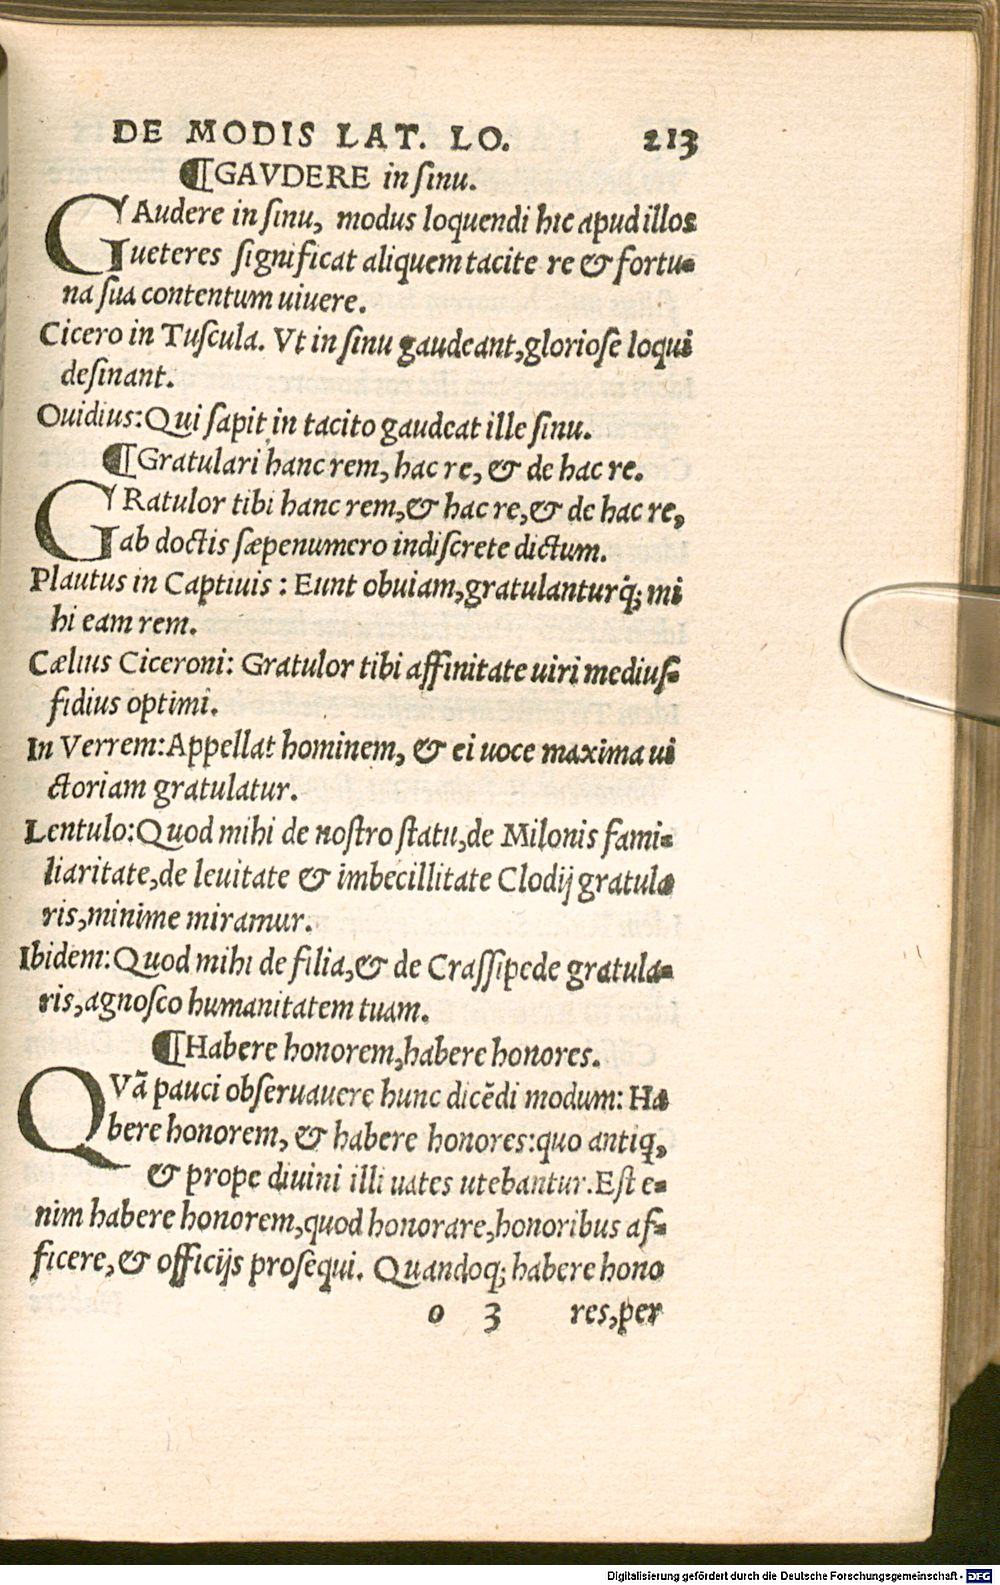 DE MODIS LAT. LO. 213
¶GAVDERE in ſinu.
GAudere in ſinu, modus loquendi hic apud illos
ueteres ſignificat aliquem tacite re & fortu-
na ſua contentum uiuere.
Cicero in Tuſcula. Vt in ſinu gaudeant,glorioſe loqui
deſinant.
Ouidius:Qui ſapit in tacito gaudeat ille ſinu.
¶Gratulari hanc rem, hac re, & de hac re.
GRatulor tibi hanc rem,& hac re,& de hac re,
ab doctis ſæpenumero indiſcrete dictum.
Plautus in Captiuis : Eunt obuiam,gratulanturq́; mi
hi eam rem.
Cælius Ciceroni: Gratulor tibi affinitate uiri mediuſ-
fidius optimi.
In Verrem:Appellat hominem, & ei uoce maxima ui
ctoriam gratulatur.
Lentulo:Quod mihi de noſtro ſtatu,de Milonis fami-
liaritate,de leuitate & imbecillitate Clodij gratula
ris,minime miramur.
Ibidem:Quod mihi de filia,& de Craſſipede gratula-
ris,agnoſco humanitatem tuam.
¶Habere honorem,habere honores.
QVã pauci obſeruauere hunc dicẽdi modum: Ha
bere honorem, & habere honores:quo antiq,
& prope diuini illi uates utebantur.Eſt e-
nim habere honorem,quod honorare,honoribus af-
ficere,& officijs proſequi. Quandoq; habere hono
o 3 res,per
Digitalisierung gefördert durch die Deutsche Forschungsgemeinschaft - DFG